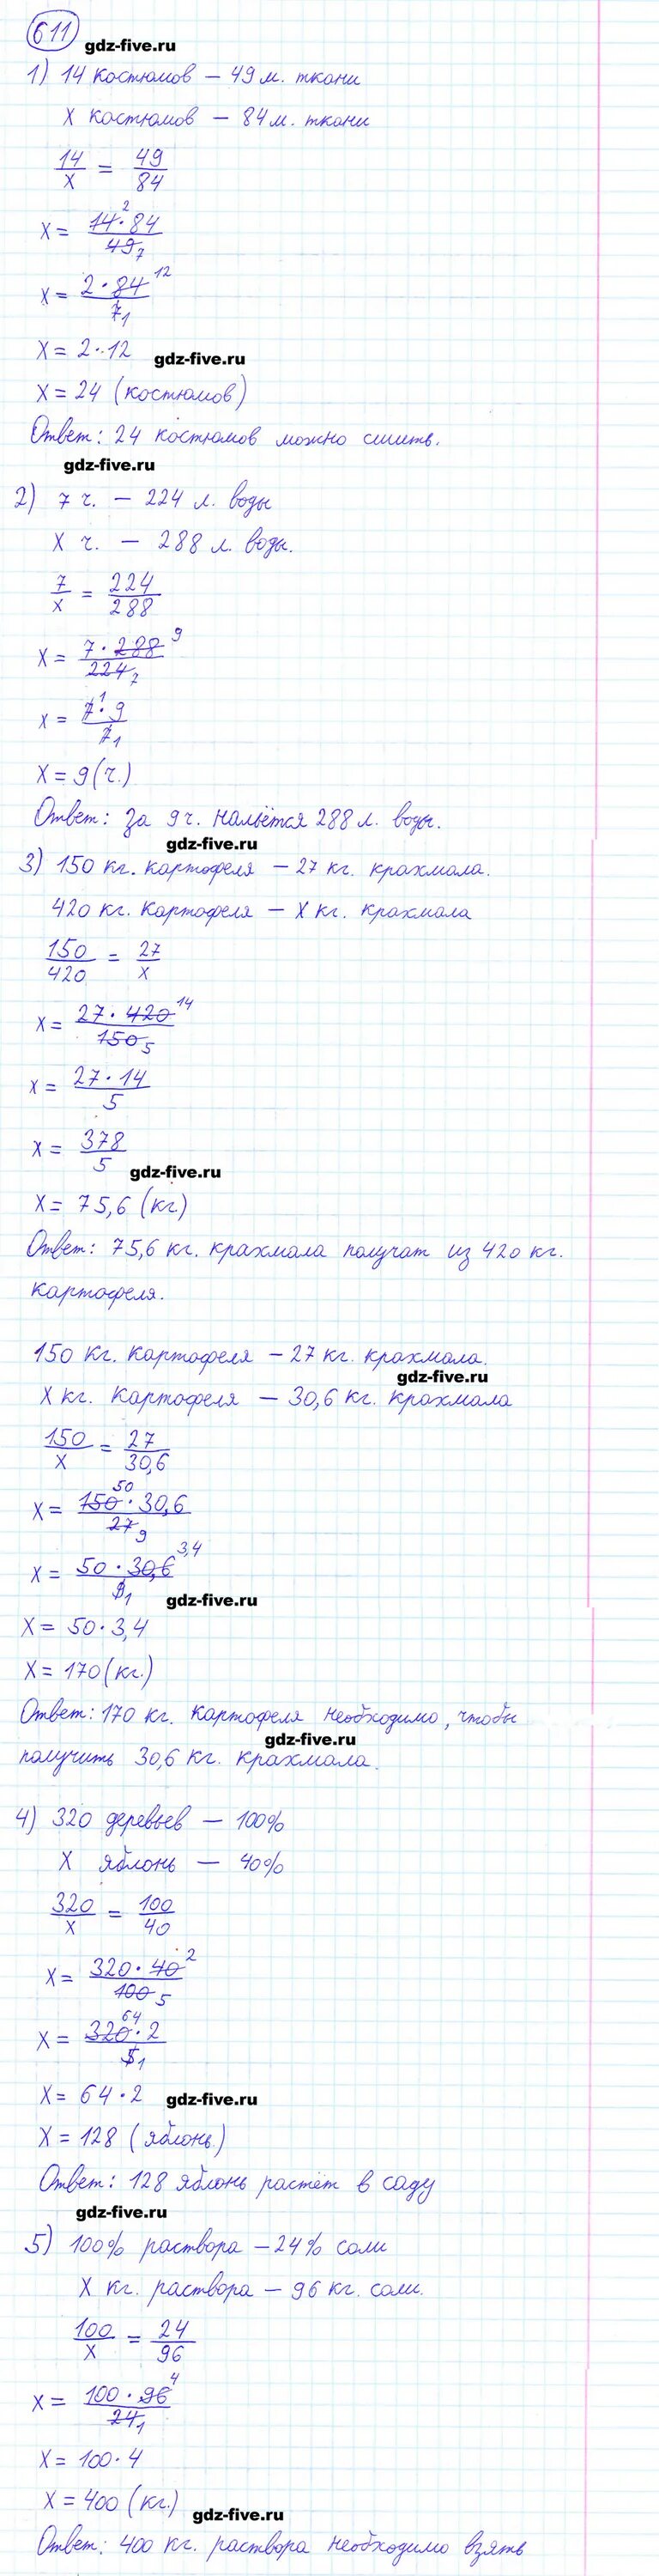 611
gdz-five.ru
1) 14 костюмов – 49 м. ткани
X костюмов – 84 м. ткани
14/X = 49/84
X = 14·84/49 2 7
X = 2·84/7 12 1
X = 2·12 gdz-five.ru
X = 24 (костюмов)
Ответ: 24 костюмов можно сшить.
gdz-five.ru
2) 7 ч. – 224 л. воды
X ч. – 288 л. воды.
7/X = 224/288
X = 7·288/224 9 7
X = 7·9/7 1 1
X = 9 (ч.)
Ответ: за 9 ч. нальётся 288 л. воды.
gdz-five.ru
3) 150 кг. картофеля – 27 кг. крахмала.
420 кг. картофеля – X кг. крахмала
150/420 = 27/X
X = 27·420/150 14 5
X = 27·14/5
X = 378/5
gdz-five.ru
X = 75,6 (кг.)
Ответ: 75,6 кг. крахмала получат из 420 кг.
картофеля.
150 кг. картофеля – 27 кг. крахмала.
gdz-five.ru
X кг. картофеля – 30,6 кг. крахмала
150/X = 27/30,6
X = 150·30,6/27 50 9
X = 50·30,6/9 3,4 1
gdz-five.ru
X = 50·3,4
X = 170 (кг.)
Ответ: 170 кг. картофеля необходимо, чтобы
gdz-five.ru
получить 30,6 кг. крахмала.
4) 320 деревьев – 100%
X яблонь – 40%
320/X = 100/40
X = 320·40/100 2 5
X = 320·2/5 64 1
X = 64·2 gdz-five.ru
X = 128 (яблонь)
Ответ: 128 яблонь растёт в саду
gdz-five.ru
5) 100% раствора – 24% соли
X кг. раствора – 96 кг. соли.
100/X = 24/96
X = 100·96/24 4 1
X = 100·4
X = 400 (кг.) gdz-five.ru
Ответ: 400 кг. раствора необходимо взять